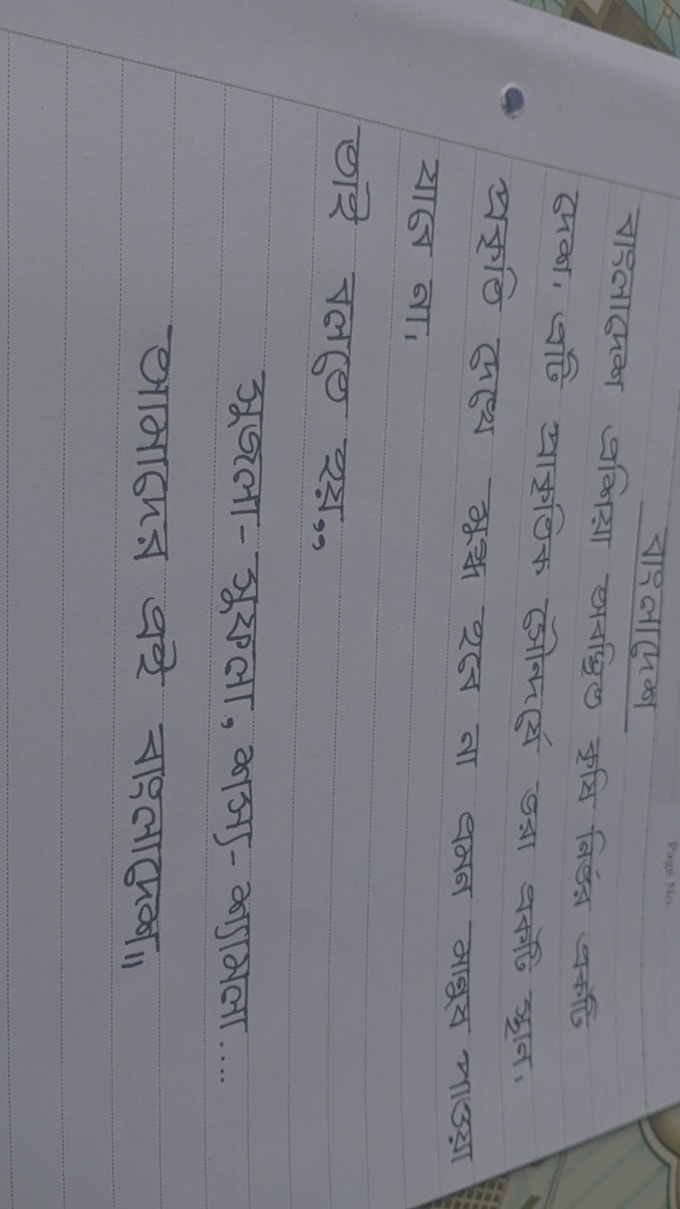 Page No.
বাংলাদেশ
বাংলাদেশ এশিয়া অবস্থিত কৃষি নির্ভর একটি
দেশ। এটি প্রাকৃতিক সৌন্দর্যে ভরা একটি স্থান।
প্রকৃতি দেখে মুগ্ধ হবে না এমন মানুষ পাওয়া
যাবে না।
তাই বলতে হয়,,
সুজলা- সুফলা, শস্য- শ্যামলা....
আমাদের এই বাংলাদেশ॥